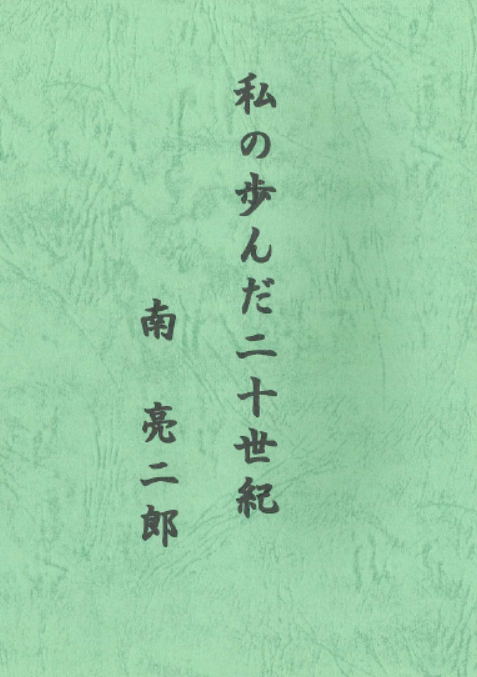 私の歩んだ二十世紀
南 亮二郎